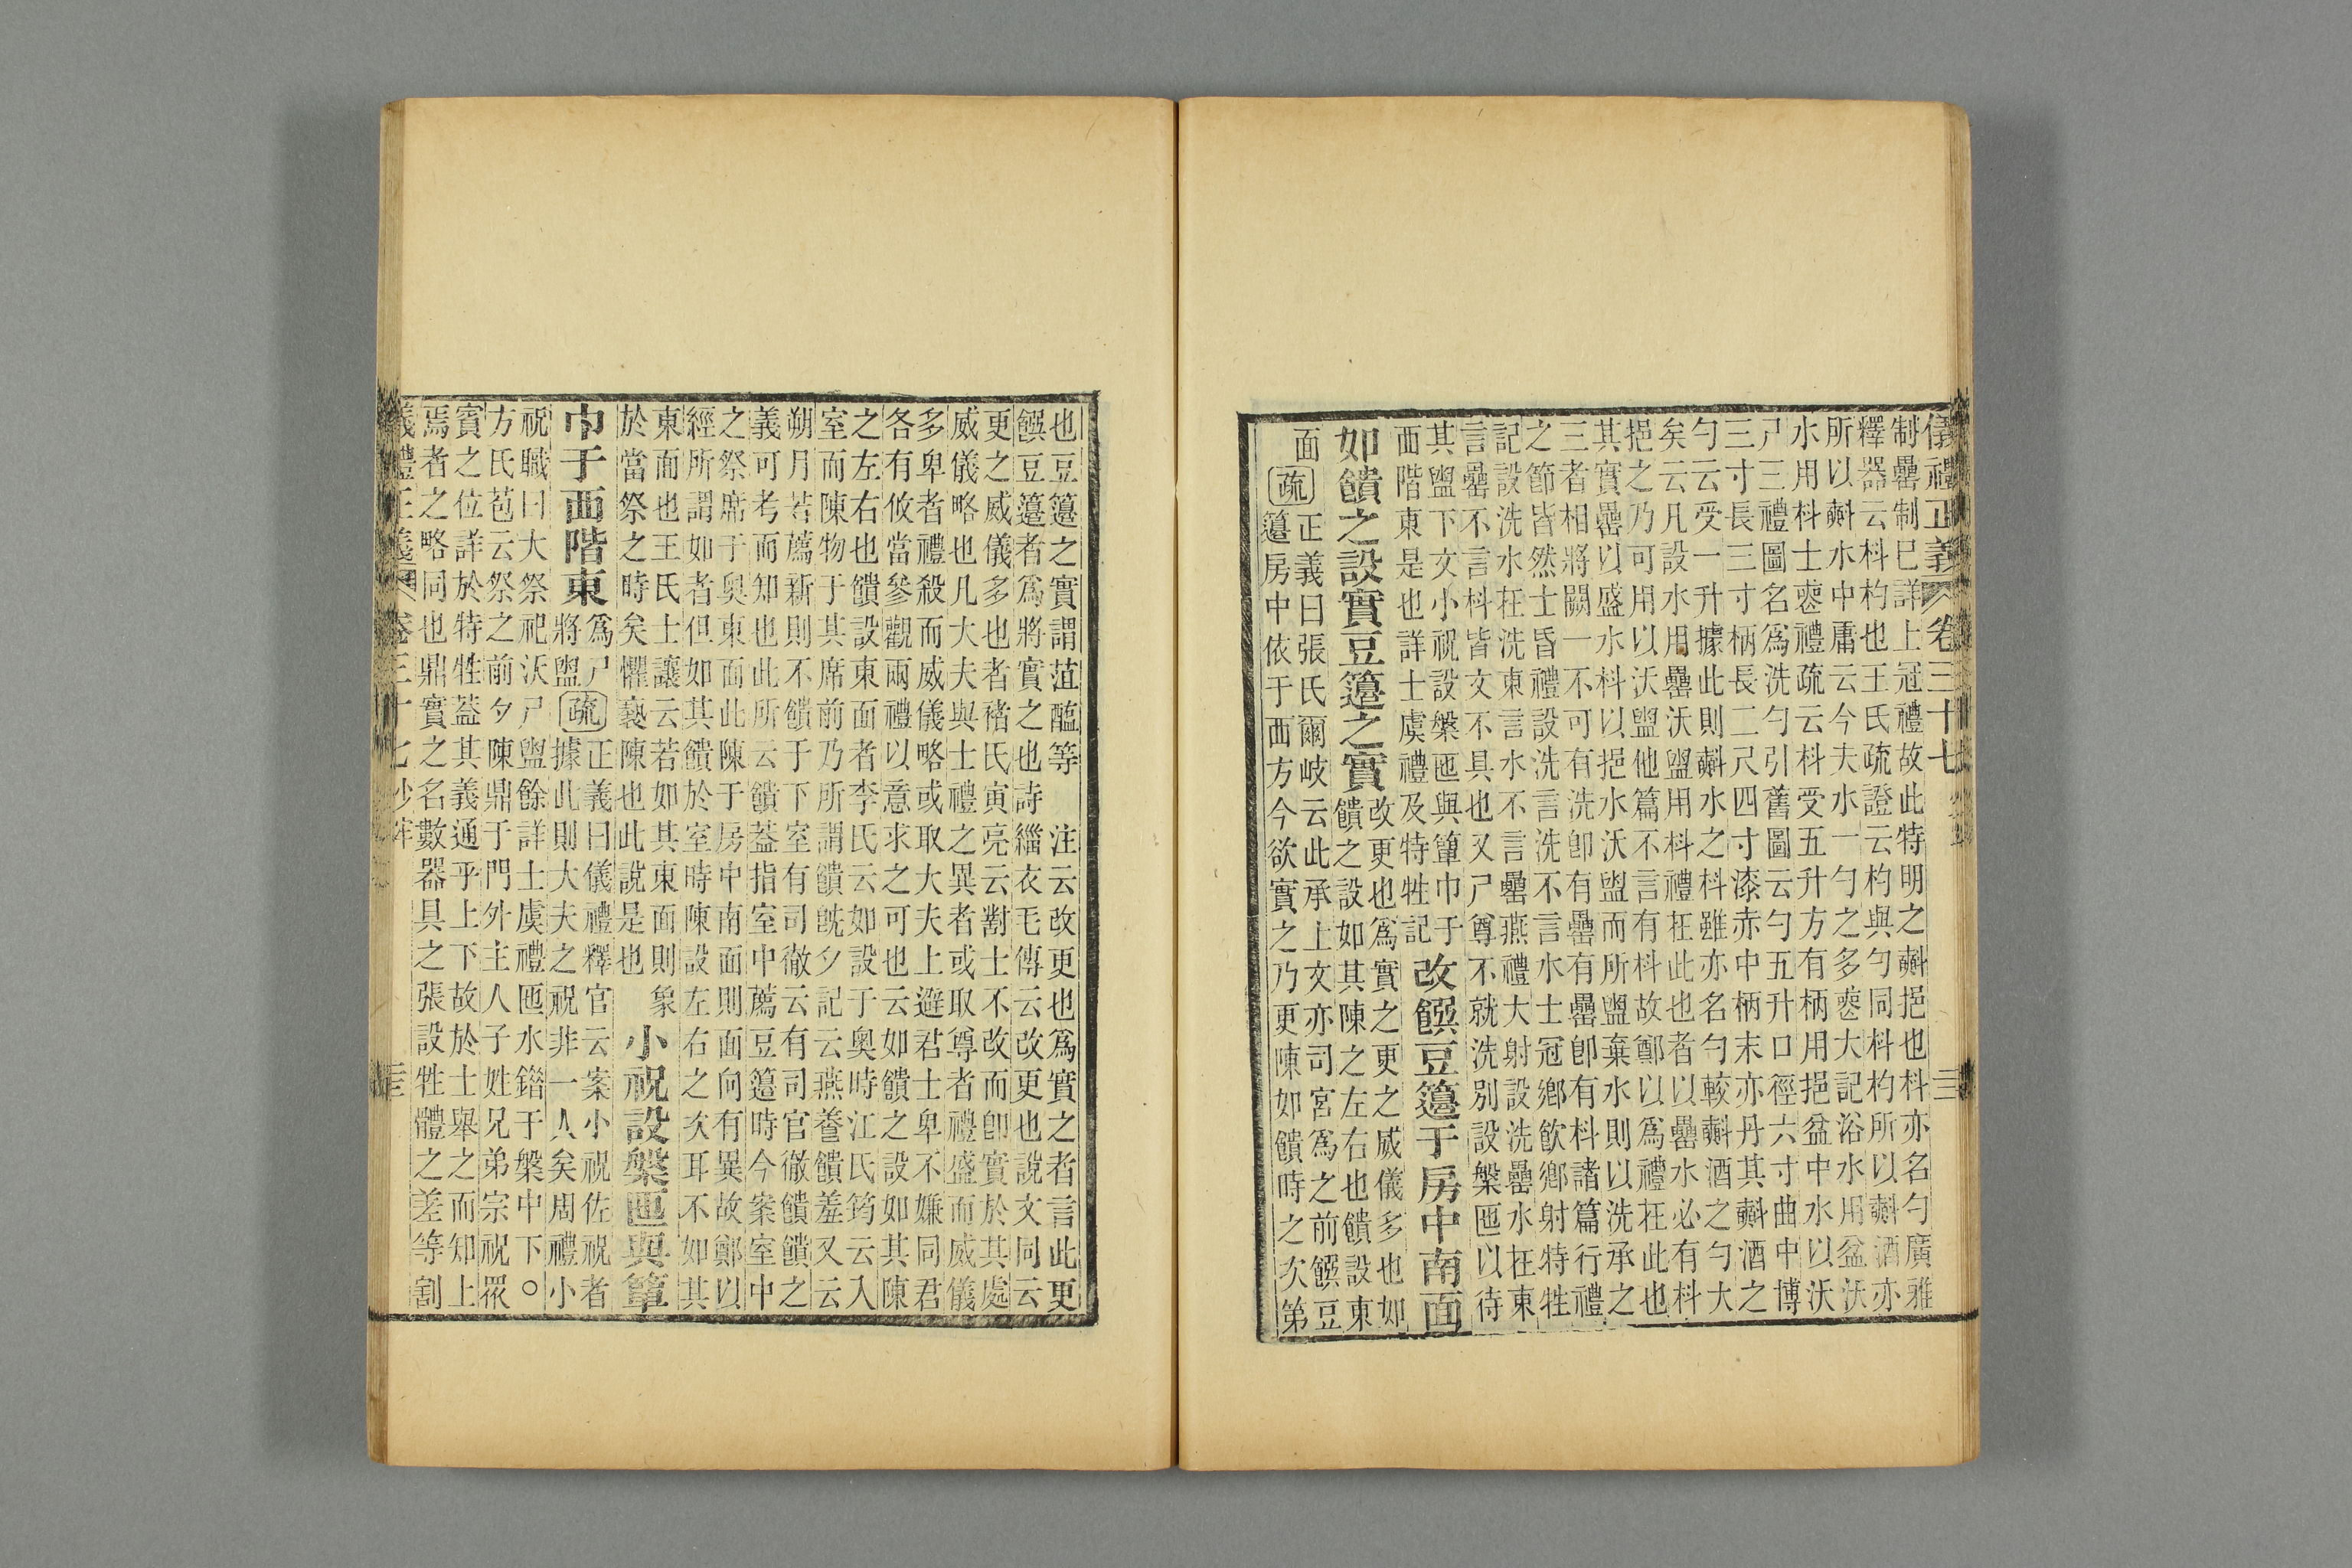 儀禮正義 卷三十七 三
制罍制已詳上冠禮故此特明之㪺挹也枓亦名勺廣雅
釋器云枓杓也王氏疏證云杓與勺同枓杓所以㪺酒亦
所以㪺水中庸云今夫水一勺之多喪大記浴水用盆沃
水用枓士喪禮疏云枓受五升方有柄用挹盆中水以沃
尸三禮圖名為洗勺引舊圖云勺五升口徑六寸曲中博
三寸長三寸柄長二尺四寸漆赤中柄末亦丹其㪺酒之
勺云受一升據此則㪺水之枓雖亦名勺較㪺酒之勺大
矣云凡設水用罍沃盥用枓禮在此也者以罍水必有枓
挹之乃可用以沃盥他篇不言有枓故鄭以為禮在此也
其實罍以盛水枓以挹水沃盥而所盥棄水則以洗承之
三者相將闕一不可有洗卽有罍有罍卽有枓諸篇行禮
之節皆然士昏禮設洗言洗不言水士冠鄉飲鄉射特牲
記設洗水在洗東言水不言罍燕禮大射設洗罍水在東
言罍不言枓皆文不具也又尸尊不就洗別設槃匜以待
其盥下文小祝設槃匜與簞巾于
西階東是也詳士虞禮及特牲記
改饌豆籩于房中南面
如饋之設實豆籩之實
改更也為實之更之威儀多也如
饋之設如其陳之左右也饋設東
面 疏 正義曰張氏爾岐云此承上文亦司宮為之前饌豆
籩房中依于西方今欲實之乃更陳如饋時之次第
也豆籩之實謂菹醢等 注云改更也為實之者言此更
饌豆籩者為將實之也詩緇衣毛傳云改更也說文同云
更之威儀多也者褚氏寅亮云對士不改而卽實於其處
威儀略也凡大夫與士禮之異者或取尊者禮盛而威儀
多卑者禮殺而威儀略或取大夫上避君士卑不嫌同君
各有攸當參觀兩禮以意求之可也云如饋之設如其陳
之左右也饋設東面者李氏云如設于奧時江氏筠云入
室而陳物于其席前乃所謂饋旣夕記云燕養饋羞又云
朔月若薦新則不饋于下室有司徹云有司官徹饋饌之
義可考而知也此所云饋葢指室中薦豆籩時今案室中
之祭席于奧東面此陳于房中南面則面向有異故鄭以
經所謂如者但如其饋於室時陳設左右之次耳不如其
東面也王氏士讓云若如其東面則象
於當祭之時矣懼褻陳也此說是也
小祝設槃匜與簞
巾于西階東
為尸
將盥
疏 正義曰儀禮釋官云案小祝佐祝者
據此則大夫之祝非一人矣周禮小
祝職曰大祭祀沃尸盥餘詳士虞禮匜水錯于槃中下○
方氏苞云祭之前夕陳鼎于門外主人子姓兄弟宗祝眾
賓之位詳於特牲葢其義通乎上下故於士舉之而知上
焉者之略同也鼎實之名數器具之張設牲體之差等割
儀禮正義 卷三十七 少牢 三